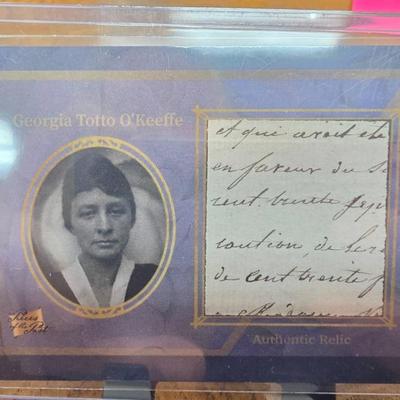 Georgia Totto O'Keeffe
et qui avoit été
en faveur du S
cent trente sep
caution, de
de cent trente
Pieces
of the Past
Authentic Relic